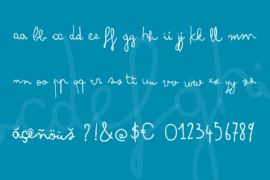 aa bb cc dd ee ff gg hh ii jj kk ll mm
nn oo pp qq rr ss tt uu vv ww xx yy zz
áçêñöùš ?!&@$€ 0123456789